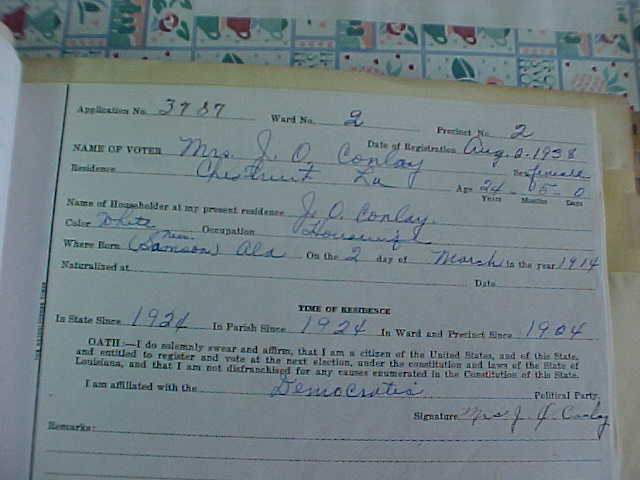 Application No. 3787 Ward No. 2 Precinct No. 2
Date of Registration Aug. 2 - 1938
NAME OF VOTER Mrs. J. O. Conlay Sex female
Residence Chestnut La Age 24 - 5 - 0
Years Months Days
Name of Householder at my present residence J. O. Conlay.
Color White Occupation Housewife
Where Born (Near Samson) Ala On the 2 day of March in the year 1914
Naturalized at Date
TIME OF RESIDENCE
In State Since 1924 In Parish Since 1924 In Ward and Precinct Since 1904
OATH:—I do solemnly swear and affirm, that I am a citizen of the United States, and of this State,
and entitled to register and vote at the next election, under the constitution and laws of the State of
Louisiana, and that I am not disfranchised for any causes enumerated in the Constitution of this State.
I am affiliated with the Democrates Political Party.
Signature Mrs. J. O. Conlay
Remarks: